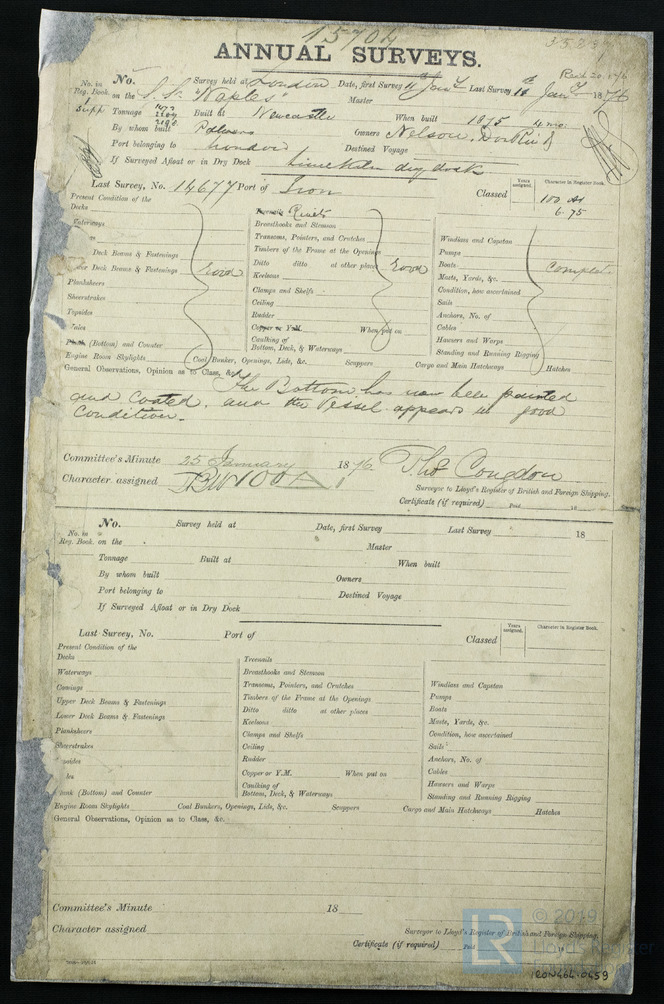 15704
ANNUAL SURVEYS.
Recd 20.1.76
No. in Reg. Book. No. Survey held at London Date, first Survey 11th Jany Last Survey 18 Jany 1876
on the S.S. Naples Master
Supp Tonnage Built at Newcastle When built 1875 4 mo.
By whom built Palmers Owners Nelson, Donkin &
Port belonging to London Destined Voyage
If Surveyed Afloat or in Dry Dock Limekiln dry dock
Last Survey, No. 14677 Port of Iron Classed Years assigned. Character in Register Book.
100 A1
6.75
Present Condition of the
Decks
Waterways
Deck Beams & Fastenings
Deck Beams & Fastenings Good
Planksheers
Sheerstrakes
Topsides
Wales
Plank (Bottom) and Counter
Engine Room Skylights Coal Bunker, Openings, Lids, &c. Scuppers Cargo and Main Hatchways Hatches
Treenails Rivets
Breasthooks and Stemson
Transoms, Pointers, and Crutches
Timbers of the Frame at the Openings
Ditto ditto at other places Good
Keelsons
Clamps and Shelfs
Ceiling
Rudder
Copper or Y.M. When put on
Caulking of Bottom, Deck, & Waterways
Windlass and Capstan
Pumps
Boats Complete
Masts, Yards, &c.
Condition, how ascertained
Sails
Anchors, No. of
Cables
Hawsers and Warps
Standing and Running Rigging
General Observations, Opinion as to Class, &c. The Bottom has now been painted
and coated, and the Vessel appears in good
condition.
Committee's Minute 25 January 1876 Thos Congdon
Character assigned 100A1 Surveyor to Lloyd's Register of British and Foreign Shipping.
Certificate (if required) Paid 18
No. in Reg. Book. No. Survey held at Date, first Survey Last Survey 18
on the Master
Tonnage Built at When built
By whom built Owners
Port belonging to Destined Voyage
If Surveyed Afloat or in Dry Dock
Last Survey, No. Port of Classed Years assigned. Character in Register Book.
Present Condition of the
Decks
Waterways
Comings
Upper Deck Beams & Fastenings
Lower Deck Beams & Fastenings
Planksheers
Sheerstrakes
Plank (Bottom) and Counter
Engine Room Skylights Coal Bunkers, Openings, Lids, &c. Scuppers Cargo and Main Hatchways Hatches
Treenails
Breasthooks and Stemson
Transoms, Pointers, and Crutches
Timbers of the Frame at the Openings
Ditto ditto at other places
Keelsons
Clamps and Shelfs
Ceiling
Rudder
Copper or Y.M. When put on
Caulking of Bottom, Deck, & Waterways
Windlass and Capstan
Pumps
Boats
Masts, Yards, &c.
Condition, how ascertained
Sails
Anchors, No. of
Cables
Hawsers and Warps
Standing and Running Rigging
General Observations, Opinion as to Class, &c.
Committee's Minute 18
Character assigned Surveyor to Lloyd's Register of British and Foreign Shipping.
Certificate (if required) Paid
LR © 2019
Lloyd's Register
IRON464-0459